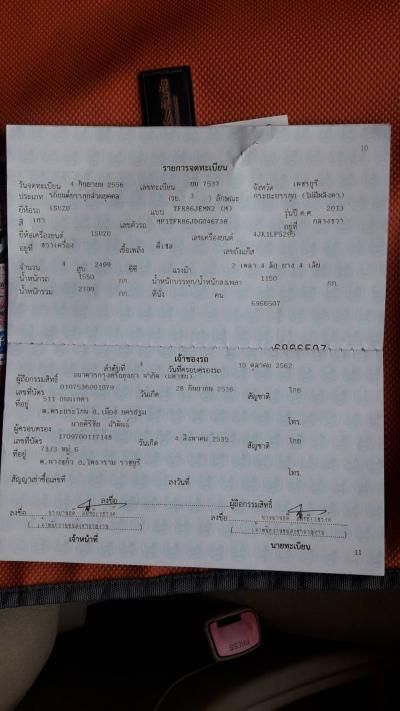 10
รายการจดทะเบียน
วันจดทะเบียน 4 กันยายน 2556 เลขทะเบียน ยม 7537 จังหวัด เพชรบุรี
ประเภท รถยนต์บรรทุกส่วนบุคคล (รย. 3 ) ลักษณะ กระบะบรรทุก (ไม่มีหลังคา)
ยี่ห้อรถ ISUZU แบบ TFR86JEMN2 (M) รุ่นปี ค.ศ. 2013
สี เทา เลขตัวรถ MP1TFR86JDG046738 อยู่ที่ กลางขวา
ยี่ห้อเครื่องยนต์ ISUZU เลขเครื่องยนต์ 4JK1LP5295
อยู่ที่ ขวาเครื่อง เชื้อเพลิง ดีเซล เลขถังแก๊ส
จำนวน 4 สูบ 2499 ซีซี แรงม้า 2 เพลา 4 ล้อ ยาง 4 เส้น
น้ำหนักรถ 1550 กก. น้ำหนักบรรทุก/น้ำหนักลงเพลา 1150 กก.
น้ำหนักรวม 2700 กก. ที่นั่ง คน
6966507
6966507
เจ้าของรถ
ลำดับที่ วันที่ครอบครองรถ 10 ตุลาคม 2562
ผู้ถือกรรมสิทธิ์ ธนาคารกรุงศรีอยุธยา จำกัด (มหาชน)
เลขที่บัตร 0107536001079 วันเกิด 28 กันยายน 2536 สัญชาติ ไทย
ที่อยู่ 511
ต.พระประโทน อ.เมือง นครปฐม โทร.
ผู้ครอบครอง
เลขที่บัตร 1709700117148 วันเกิด 4 สิงหาคม 2535 สัญชาติ ไทย
ที่อยู่ 73/3 หมู่ 6
ต.นางแก้ว อ.โพธาราม ราชบุรี โทร.
สัญญาเช่าซื้อเลขที่ ลงวันที่
ลงชื่อ ผู้ถือกรรมสิทธิ์
ลงชื่อ ลงชื่อ
เจ้าหน้าที่ นายทะเบียน
11
PRESS